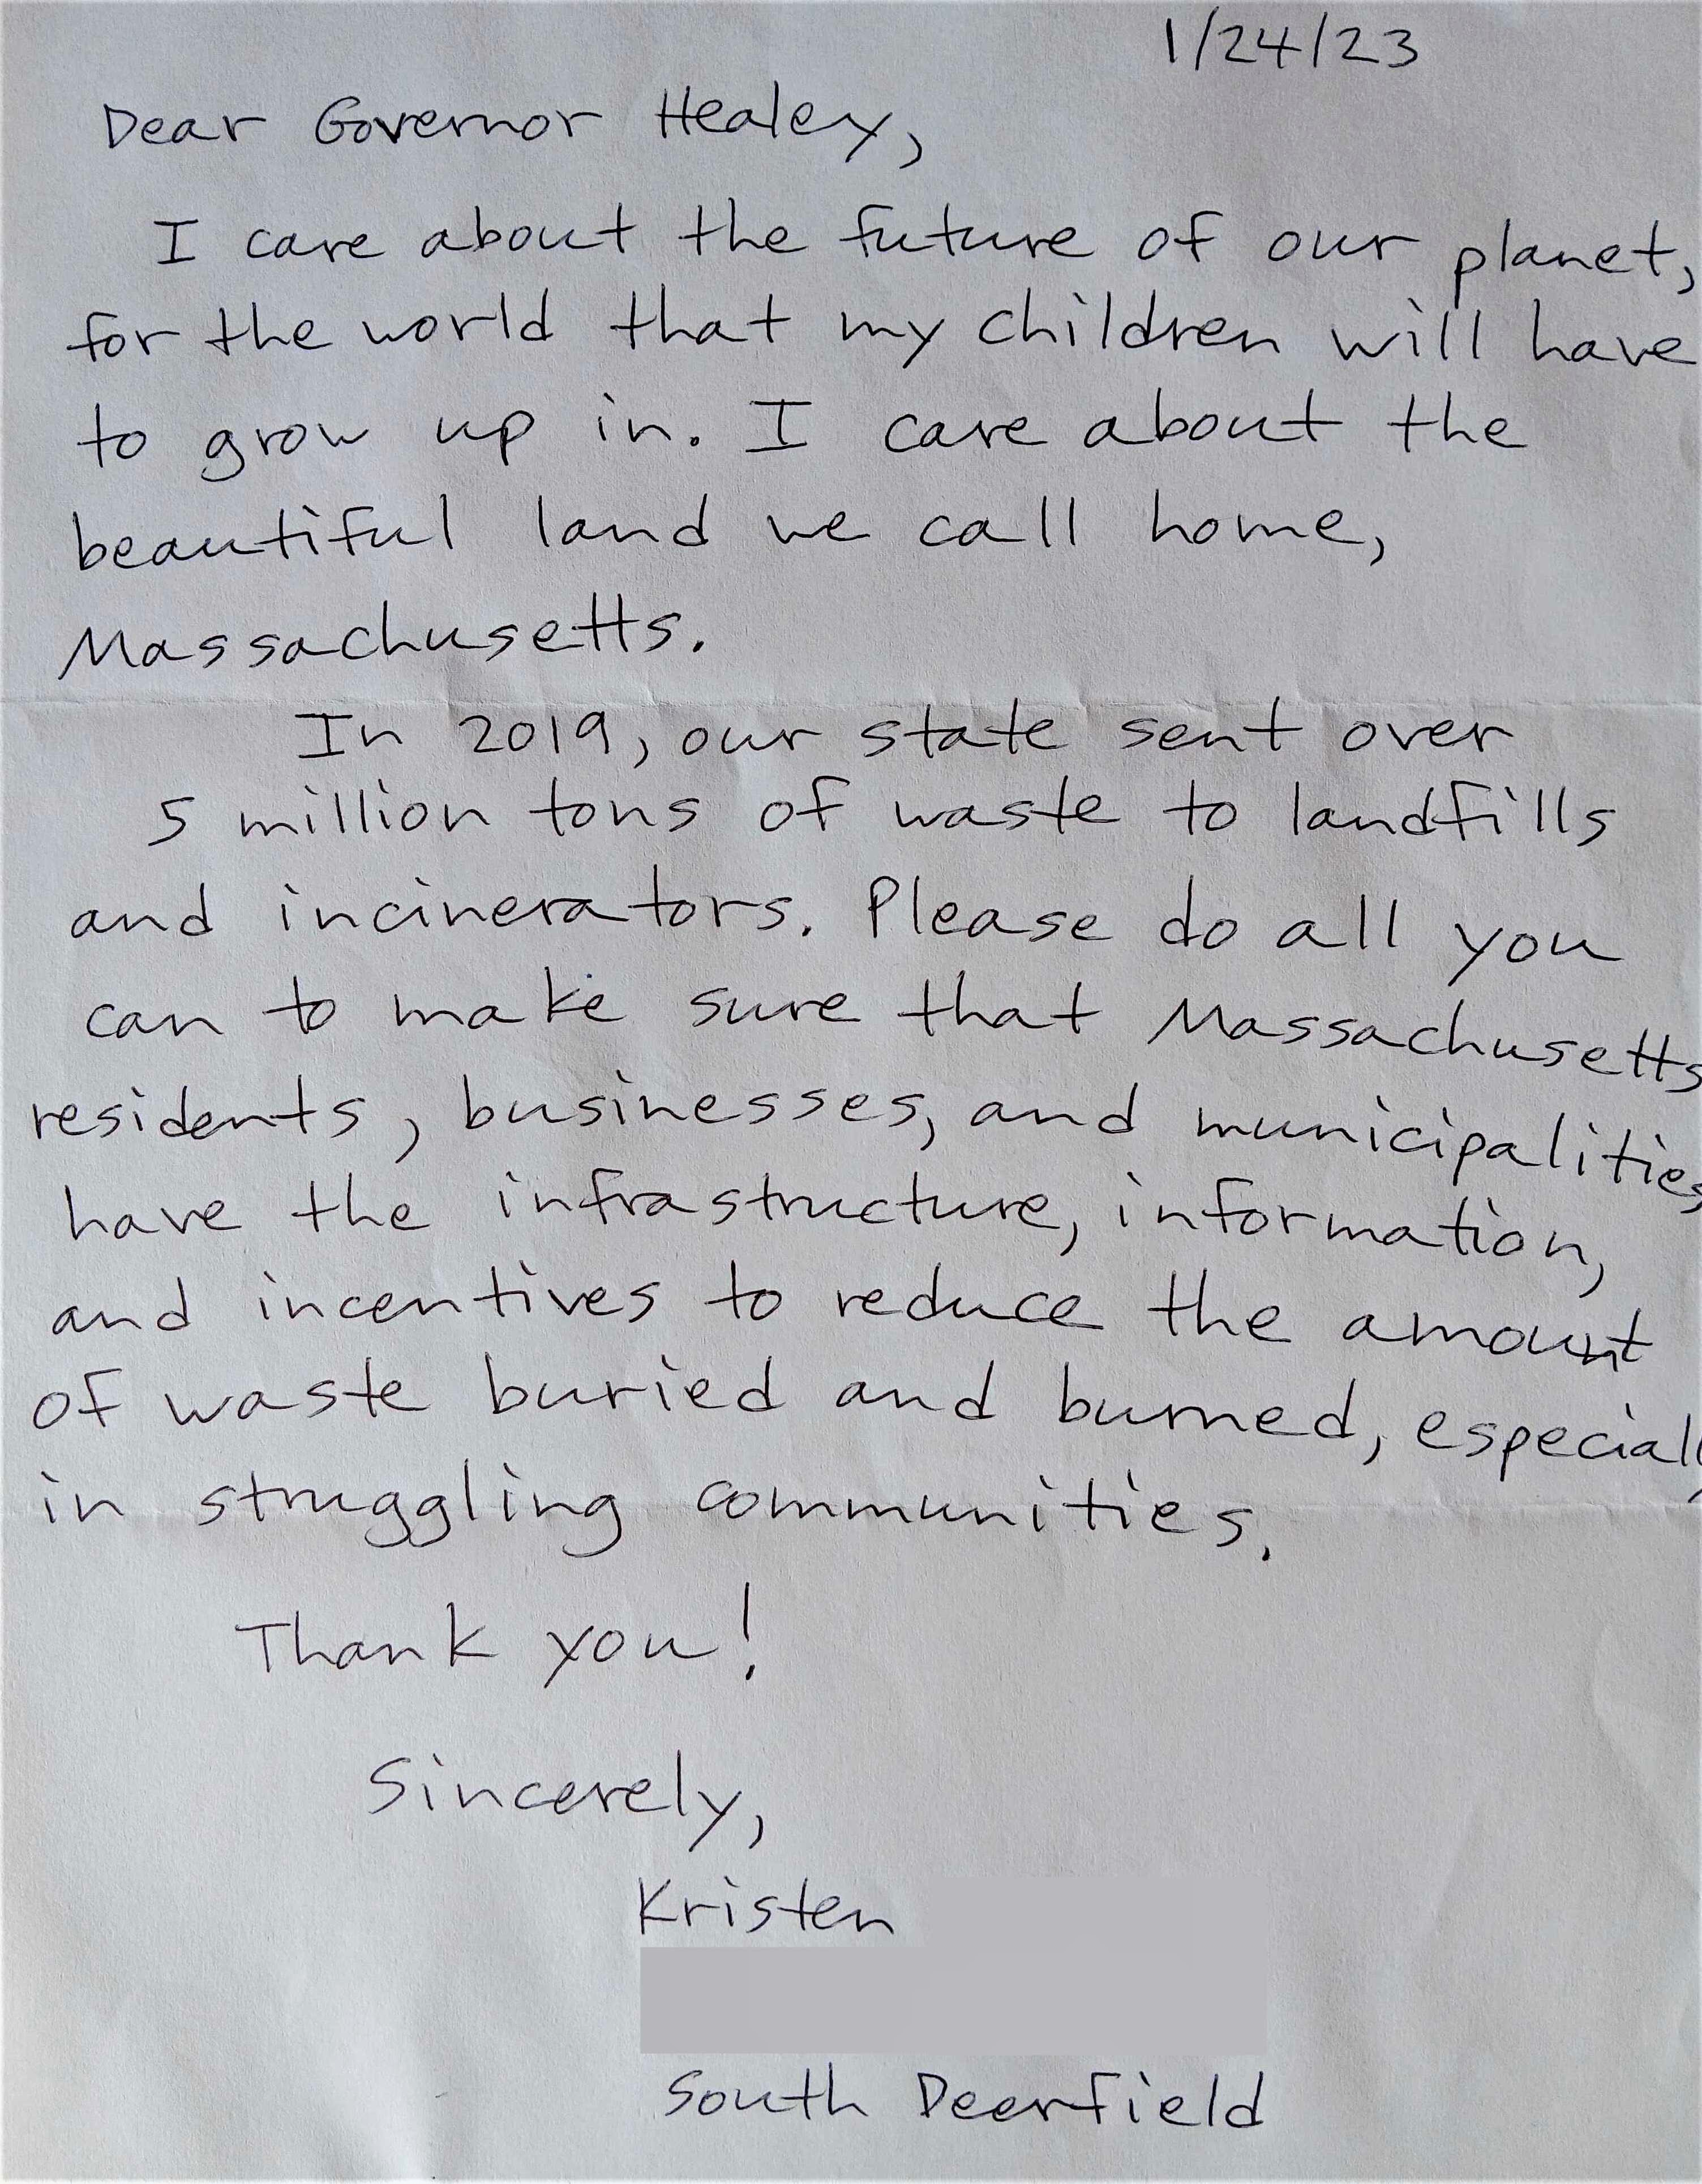 1/24/23
Dear Governor Healey,
I care about the future of our planet,
for the world that my children will have
to grow up in. I care about the
beautiful land we call home,
Massachusetts.
In 2019, our state sent over
5 million tons of waste to landfills
and incinerators. Please do all you
can to make sure that Massachusetts
residents, businesses, and municipalities
have the infrastructure, information,
and incentives to reduce the amount
of waste buried and burned, especially
in struggling communities.
Thank you!
Sincerely,
Kristen
South Deerfield